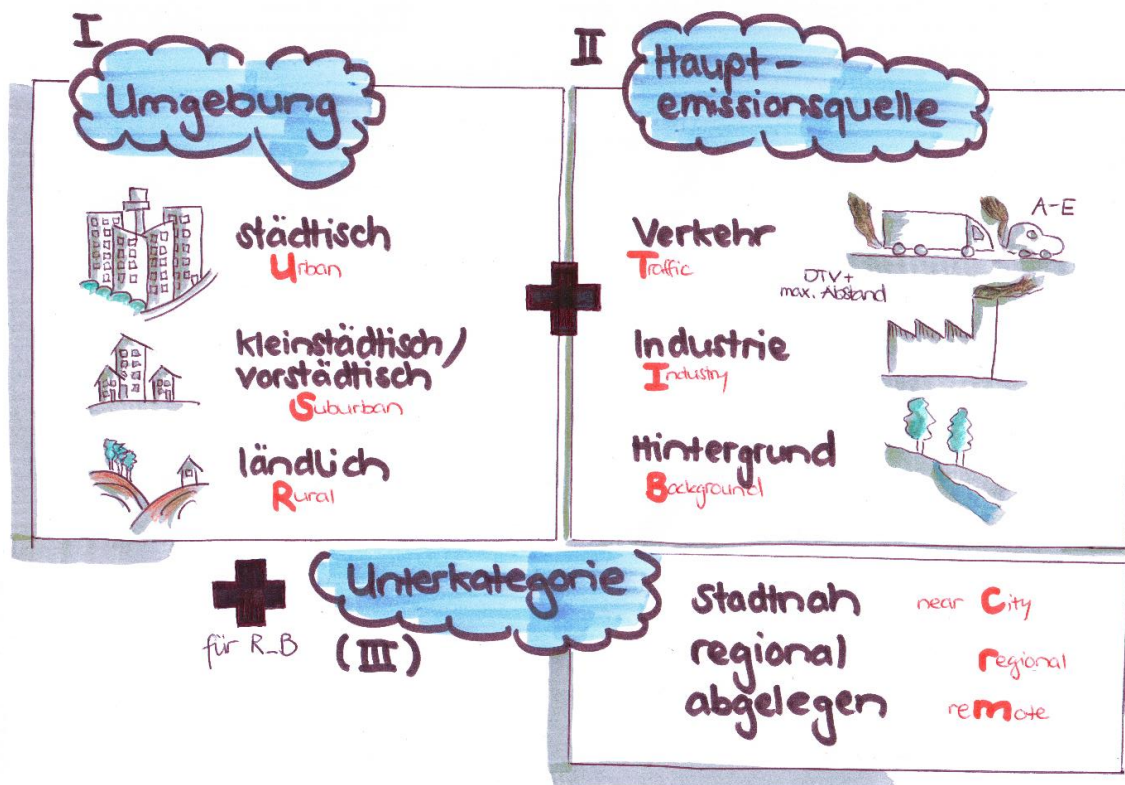 I
Umgebung
städtisch
Urban
kleinstädtisch/
vorstädtisch
Suburban
ländlich
Rural
+
II
Haupt-
emissionsquelle
Verkehr
Traffic
A-E
DTV+
max. Abstand
Industrie
Industry
Hintergrund
Background
+
für R_B
Unterkategorie
(III)
stadtnah near City
regional regional
abgelegen remote